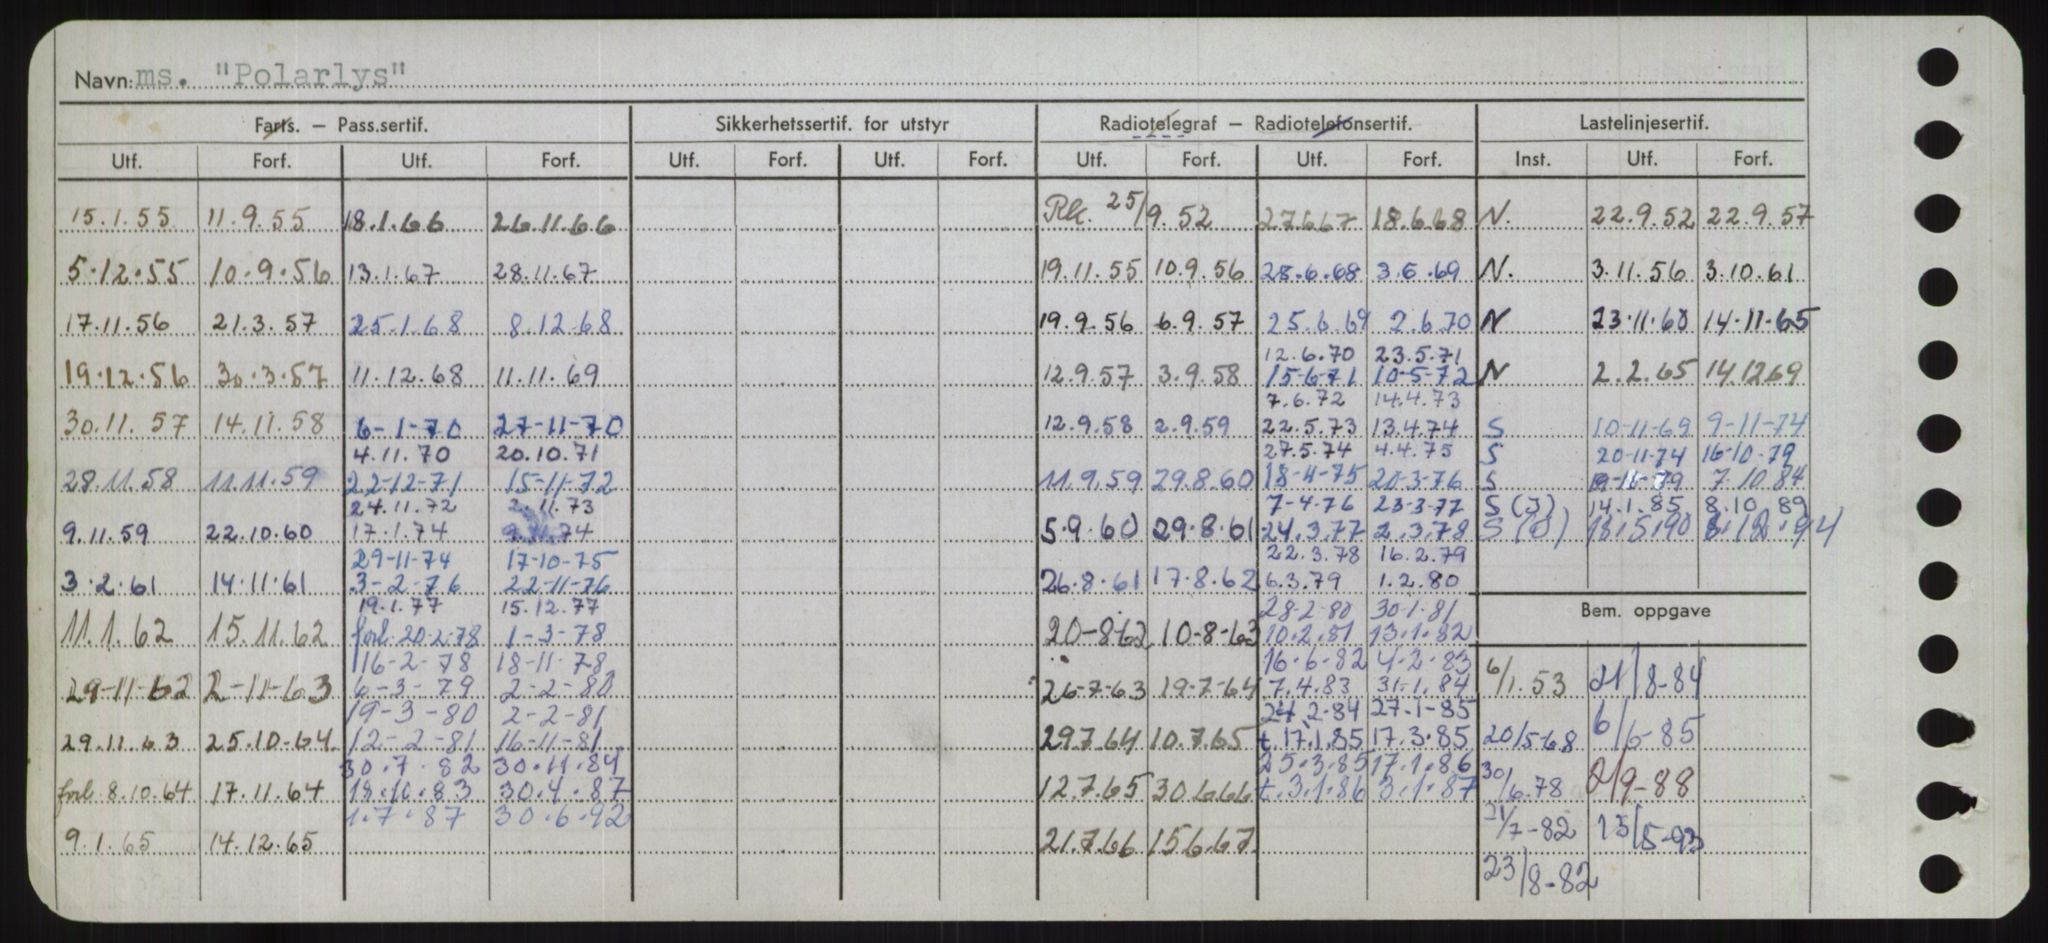 Navn: ms. "Polarlys"
Farts. – Pass.sertif. Sikkerhetssertif. for utstyr Radiotelegraf – Radiotelefonsertif. Lastelinjesertif.
Utf. Forf. Utf. Forf. Utf. Forf. Utf. Forf. Utf. Forf. Utf. Forf. Inst. Utf. Forf.
15.1.55 11.9.55 18.1.66 26.11.66 Rk. 25/9.52 27.6.67 18.6.68 N. 22.9.52 22.9.57
5.12.55 10.9.56 13.1.67 28.11.67 19.11.55 10.9.56 28.6.68 3.6.69 N. 3.11.56 3.10.61
17.11.56 21.3.57 25.1.68 8.12.68 19.9.56 6.9.57 25.6.69 2.6.70 N 23.11.60 14-11-65
12.6.70 23.5.71
19.12.56 30.3.57 11.12.68 11.11.69 12.9.57 3.9.58 15-6-71 10-5-72 N 2.2.65 14.12.69
7.6.72 14.4.73
30.11.57 14.11.58 6-1-70 27-11-70 12.9.58 2.9.59 22.5.73 13.4.74 S 10-11-69 9-11-74
4.11.70 20.10.71 27.5.74 4.4.75 S 20-11-74 16-10-79
28.11.58 11.11.59 22-12-71 15-11-72 11.9.59 29.8.60 18-4-75 20-3-76 S 19-11-79 7.10.84
24.11.72 2.11.73 7-4-76 23-3-77 S (J) 14.1.85 8.10 89
9.11.59 22.10.60 17.1.74 74 5.9.60 29.8.61 24.3.77 2.3.78 S 18.5.90 94
29-11-74 17-10-75 22.3.78 16.2.79
3.2.61 14.11.61 3-2-76 22-11-76 26.8.61 17.8.62 6.3.79 1.2.80
19.1.77 15.12.77 28-2-80 30-1-81 Bem. oppgave
11.1.62 15.11.62 forl. 20-2-78 1-3-78 20-8-62 10-8-63 10.2.81 13.1.82
16-2-78 18-11-78 16-6-82 4-2-83
29-11-62 2-11-63 6-3-79 2-2-80 26-7-63 19-7-64 7.4.83 31.1.84 6/1.53 21/8-84
19-3-80 2-2-81 24.2-84 27-1-85
29.11.63 25.10.64 12-2-81 16-11-81 29.7.64 10.7.65 t.17.1.85 17.3.85 20/5-68 6/6-85
30.7.82 30.11.84 25.3.85 17.1.86
forl. 8.10.64 17.11.64 18.10.83 30.4.87 12.7.65 30.6.66 t.3.1.86 3.1.87 30/6.78 2/9-88
1.7.87 30.6.92 21/7-82 13/5-93
9.1.65 14.12.65 21.7.66 15.6.67
23/8-82